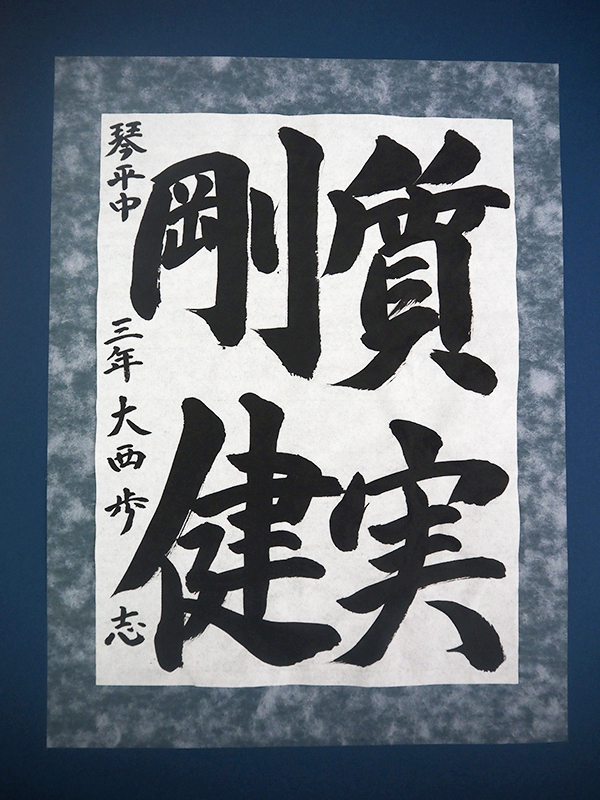 質実
剛健
琴平中 三年 大西歩 志